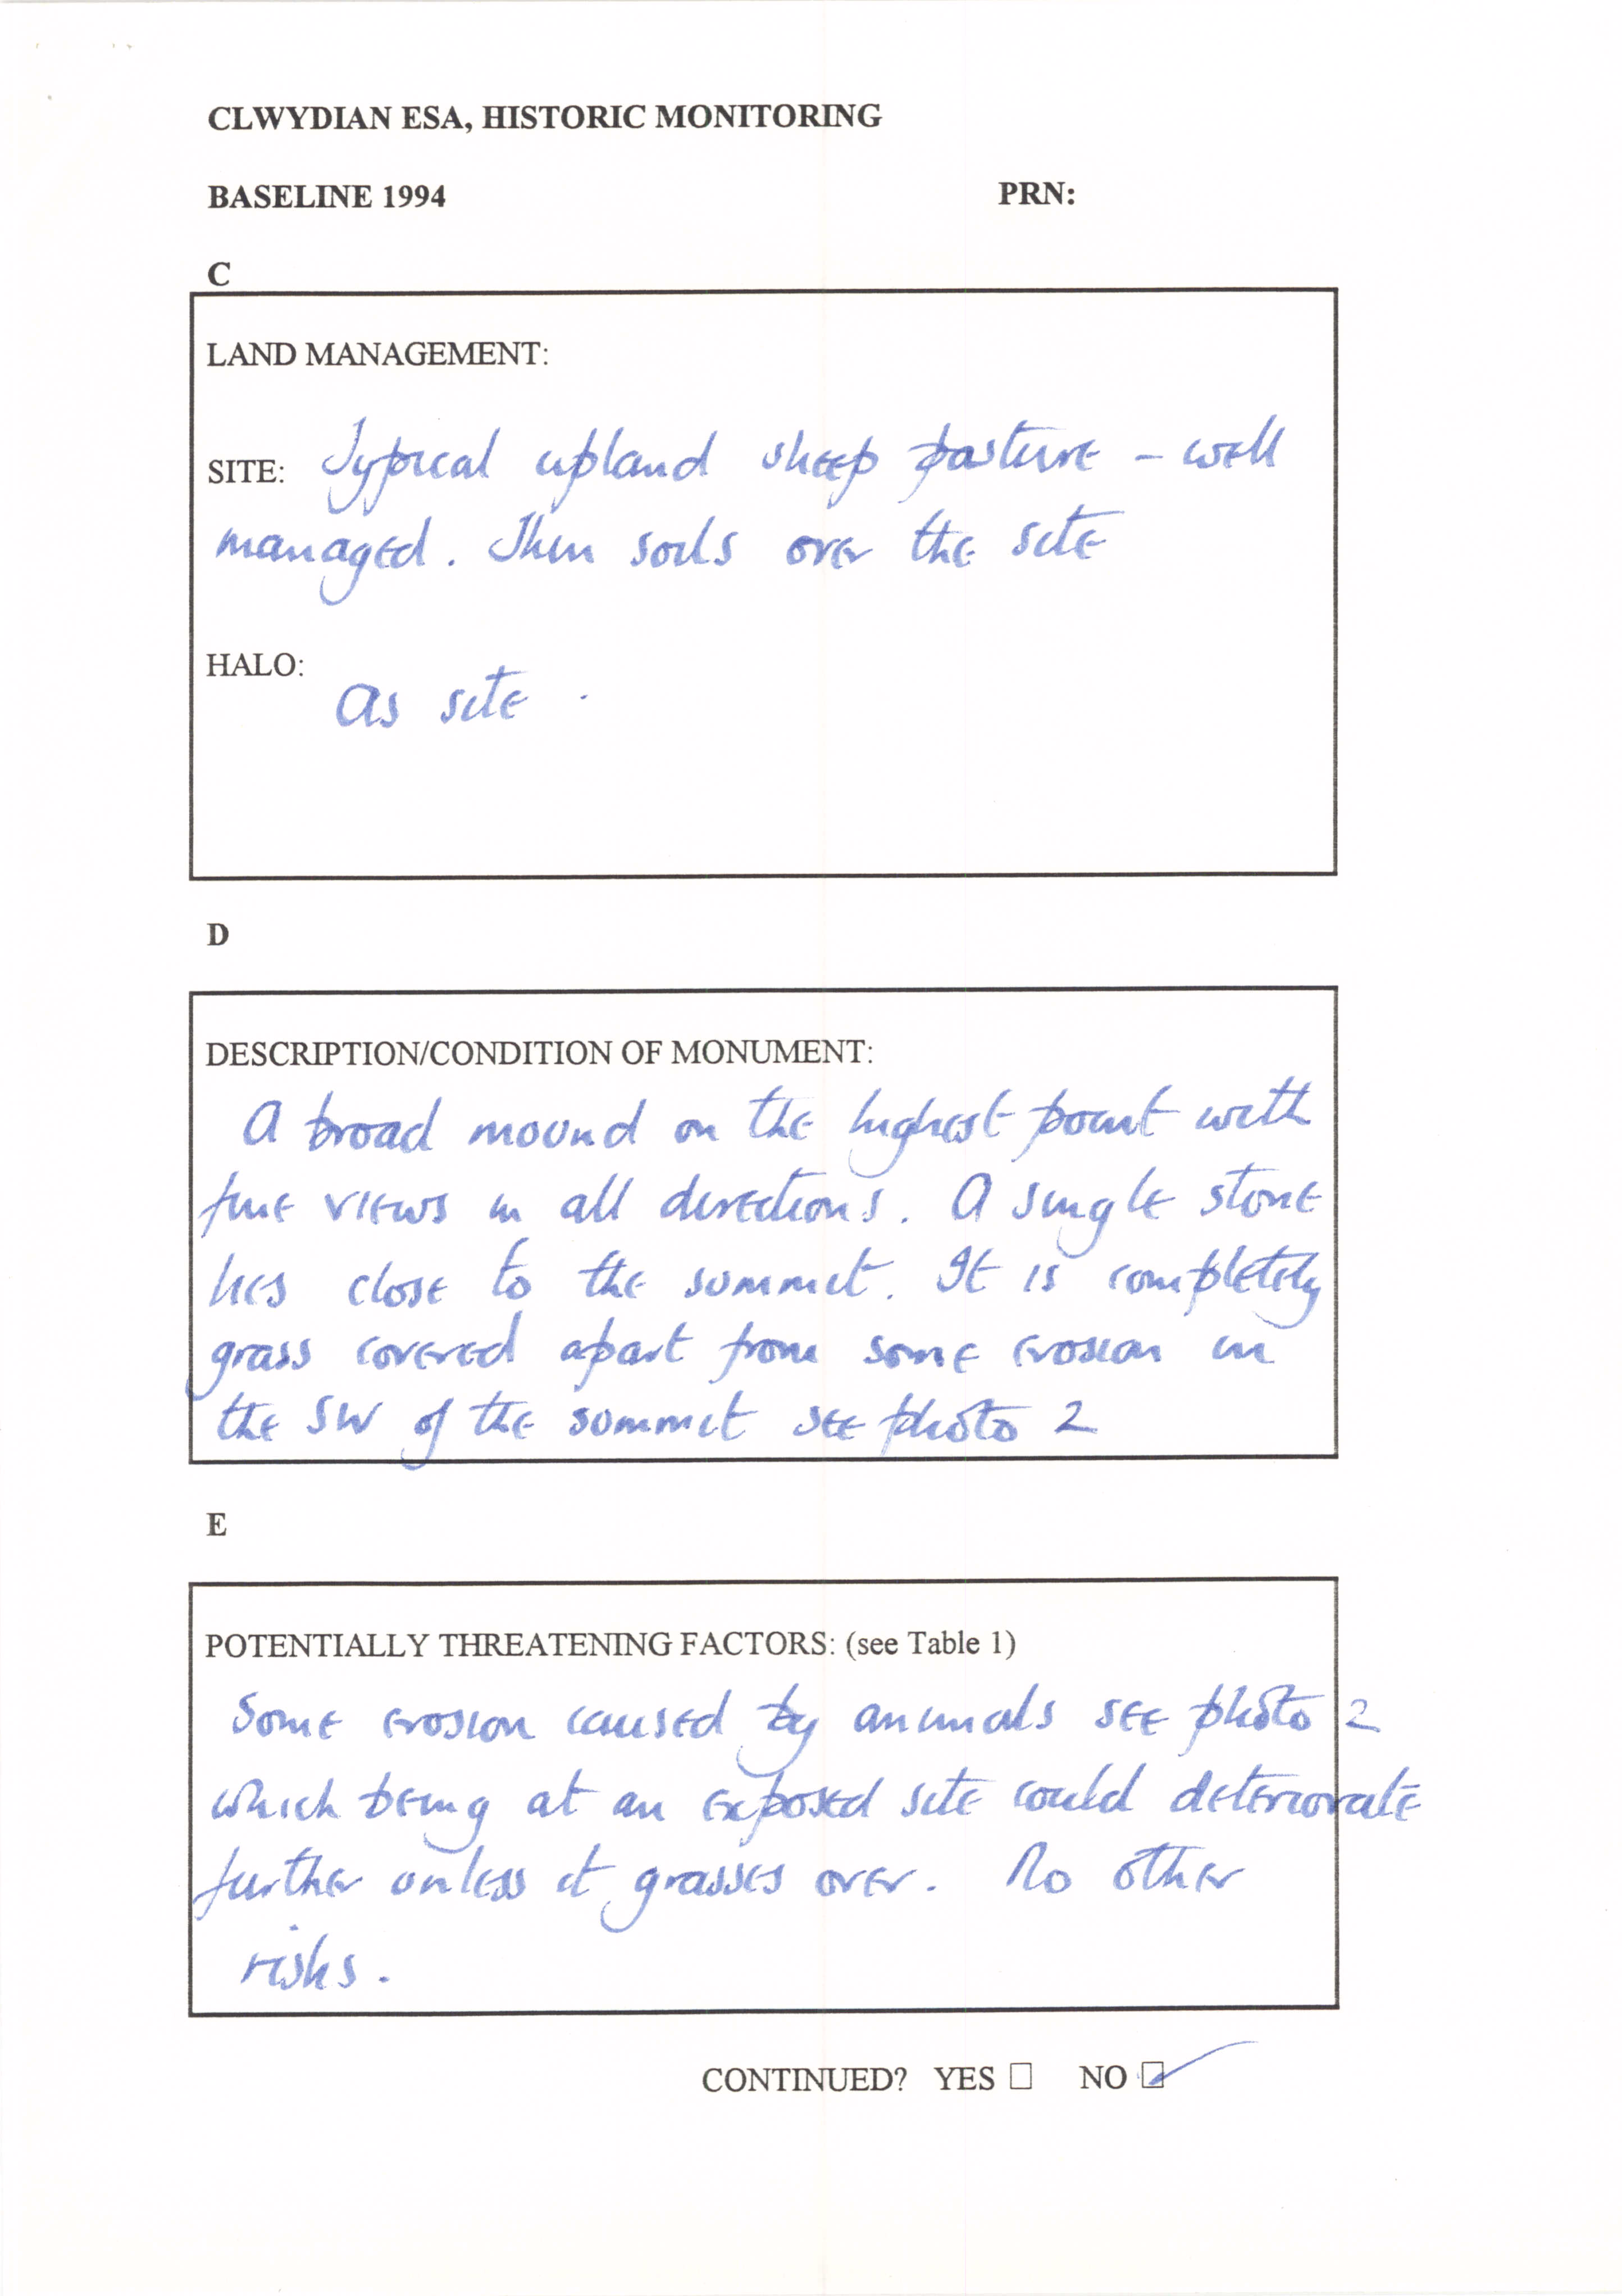 CLWYDIAN ESA, HISTORIC MONITORING
BASELINE 1994 PRN:
C
LAND MANAGEMENT:
SITE: Typical upland sheep pasture - well
managed. Thin soils over the site
HALO:
As site .
D
DESCRIPTION/CONDITION OF MONUMENT:
A broad mound on the highest point with
fine views in all directions. A single stone
lies close to the summit. It is completely
grass covered apart from some erosion in
the SW of the summit see photo 2
E
POTENTIALLY THREATENING FACTORS: (see Table 1)
Some erosion caused by animals see photo 2
which being at an exposed site could deteriorate
further unless it grasses over. No other
risks.
CONTINUED? YES ☐ NO ☑